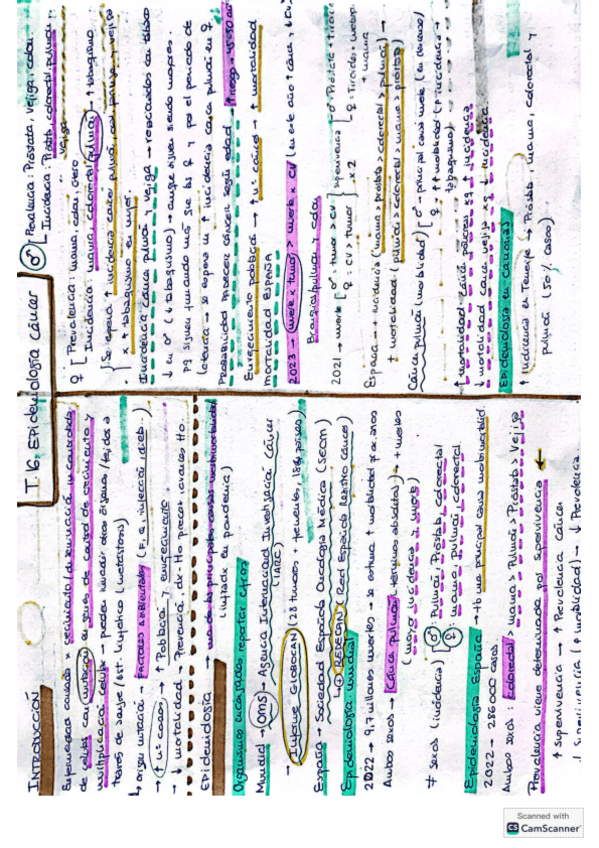 T.16. Epidemiología cáncer
INTRODUCCIÓN
Enfermedad causada x crecimiento/diseminación incontrolada
de células con mutación en genes de control de crecimiento y
multiplicación celular → pueden invadir otros órganos/tejidos a
través de sangre/sist. linfático (metástasis)
↳ origen mutación → factores ambientales
→ ↑ nº casos → ↑ Població y envejecimiento
→ ↓ mortalidad → Prevenció, dx, tto precoz, avances tto.
Epidemiología → una de las principales causas morbimortalidad
(infradx en pandemia)
Organismos encargados reportar cifras
Mundial → OMS → Agencia Internacional Investigación Cáncer
(IARC)
→ Informe Globocan (28 tumores + frecuentes, 184 países)
España → Sociedad Española Oncología Médica (SEOM)
↳ REDECAN (Red Española Registro Cáncer)
Epidemiología mundial
2022 → 9,7 millones muertes → se estima ↑ morbilidad
Ambos sexos → Cáncer pulmón (términos absolutos) → + muertes
(mayor incidencia y mort)
≠ sexos (incidencia) ♂: Pulmón, Próstata, colorectal
♀: mama, pulmón, colorectal.
Epidemiología España → tb una principal causa morbimortalid.
2022 → 280000 casos
Ambos sexos: colorectal > mama > Pulmón > Próstata > Vejiga
Prevalencia viene determinada por supervivencia
↑ supervivencia → ↑ Prevalencia cáncer
↓ Supervivencia (↑ mortalidad) → ↓ Prevalencia
♂ Prevalencia: Próstata, Vejiga, colon
Incidencia: Próstata, colorectal, pulmón,
vejiga
♀ Prevalencia: mama, colon, útero
Incidencia: mama, colorectal, pulmón → ↑ tabaquismo
Se espera ↑ incidencia cáncer pulmón,
x ↑ tabaquismo en mujer
Incidencia cáncer pulmón y vejiga → relacionados con tabaco
↓ en ♂ (↓ tabaquismo) → aunque siguen siendo mayores.
latencia → se espera en ↑ incidencia cáncer pulmón en ♀.
Probabilidad padecer cáncer según edad
Envejecimiento població → ↑ nº cáncer → ↑ mortalidad
mortalidad España
2023 → muerte x tumor > muerte x CV
Bronquios/pulmón y colon
2021 → muerte ♂: tumor > CV
♀: CV > tumor
supervivencia ♂: Próstata + Tiroides
x 2
+ mama
España → + incidencia (mama > próstata > colorectal > pulmón) →
+ mortalidad (pulmón > colorectal > mama > próstata)
Cáncer pulmón (morbilidad) ♂ → principal causa muerte
♀ → ↑↑ morbilidad (↑ incidencia →
tabaquismo)
↑ mortalidad cáncer páncreas xq ↑ incidencia
↓ mortalidad cáncer vejiga xq ↓ incidencia
Epidemiología en Canarias
↑ incidencia en Tenerife → Próstata, mama, colorectal y
pulmón (50% casos)
Scanned with
CS CamScanner